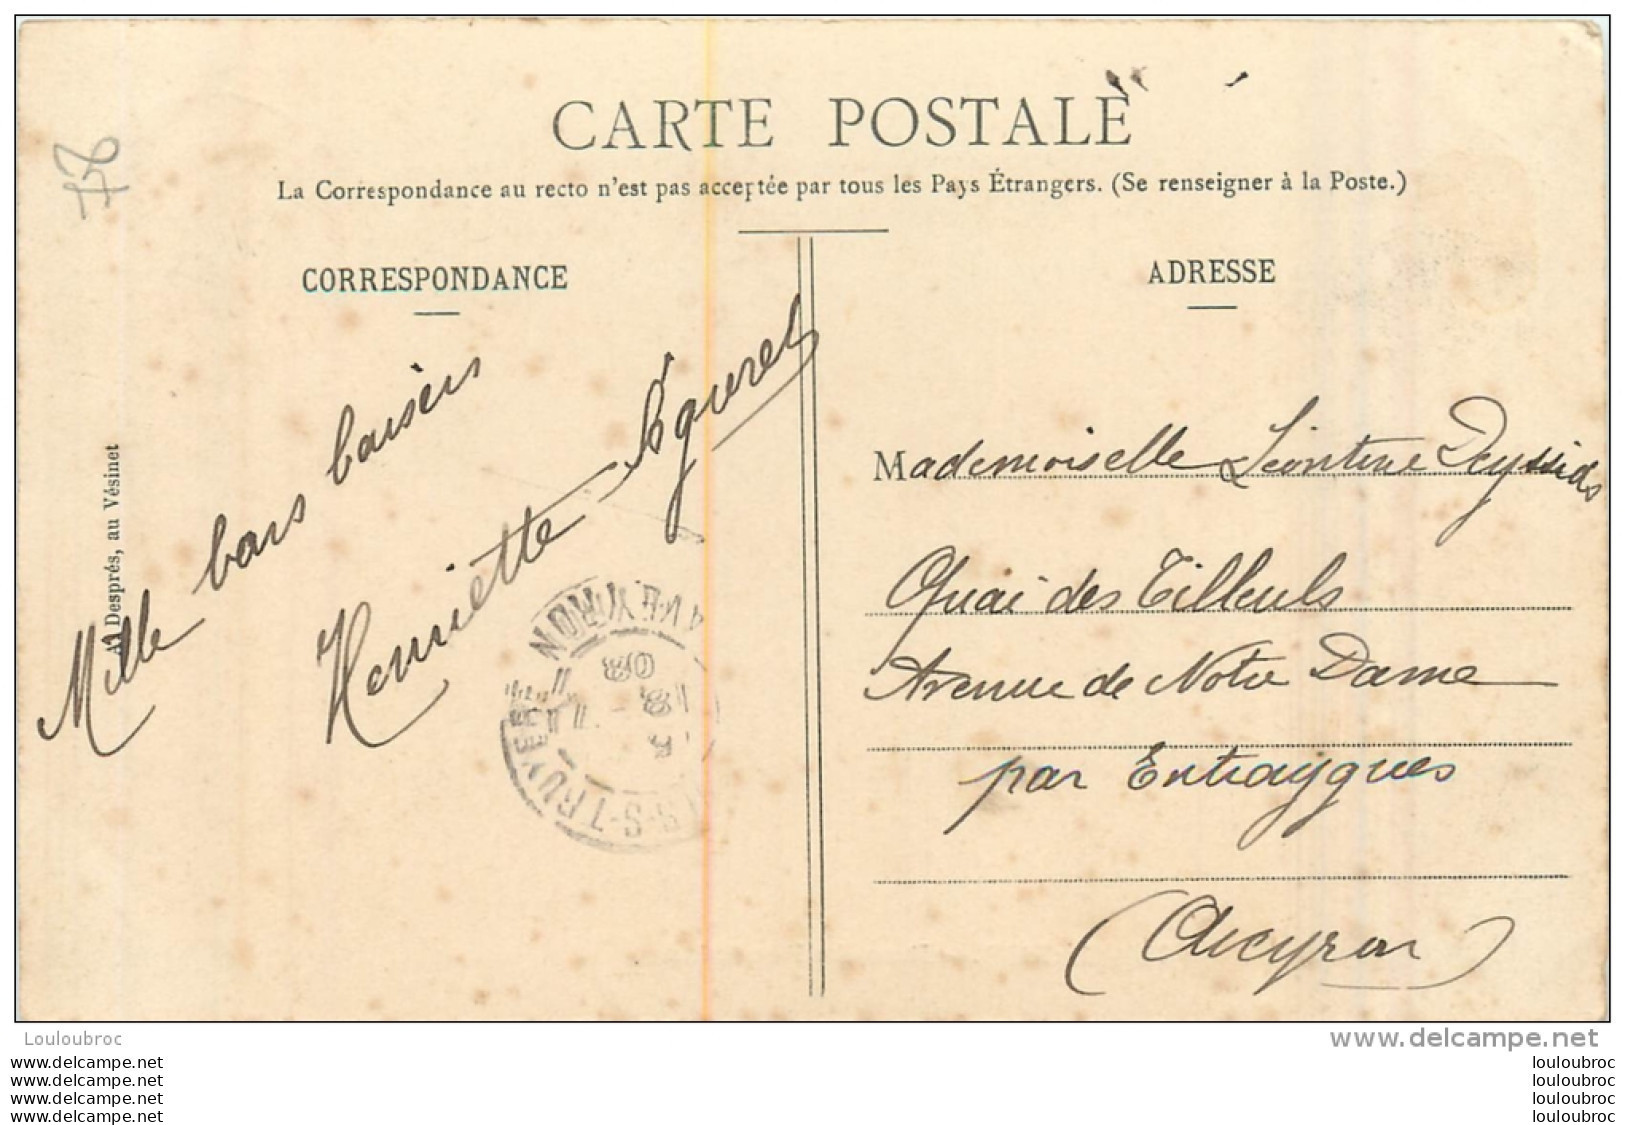 CARTE POSTALE
La Correspondance au recto n'est pas acceptée par tous les Pays Étrangers. (Se renseigner à la Poste.)
CORRESPONDANCE
ADRESSE
A. Després, au Vésinet
Mille bons baisers
Henriette
Mademoiselle Léontine
Quai des Tilleuls
Avenue de Notre Dame
par Entraygues
(Aveyron)
AVEYRON
S-TRUYERE
08
Louloubroc
www.delcampe.net
www.delcampe.net
www.delcampe.net
www.delcampe.net
www.delcampe.net
louloubroc
louloubroc
louloubroc
louloubroc